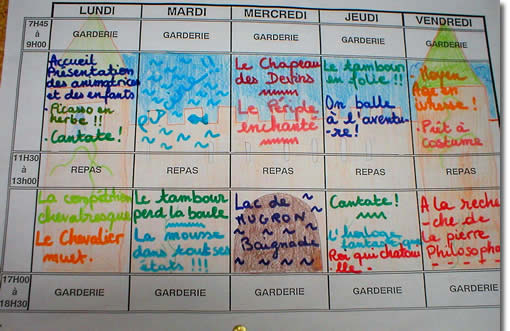 LUNDI MARDI MERCREDI JEUDI VENDREDI
7H45
à
9H00
GARDERIE GARDERIE GARDERIE GARDERIE GARDERIE
Accueil
Présentation
des animatrices
et des enfants
- Picasso en
herbe !!
- Cantate !
Le Chapeau
des Devins
Le Périple
enchanté
Le tambour
en folie !!
On balle
à l'aventu-
re !
- Moyen
Age en
- Prêt à
costume
11H30
à
13H00
REPAS REPAS REPAS REPAS REPAS
La compétition
chevaleresque
Le Chevalier
muet.
Le tambour
perd la boule
La mousse
dans tout ses
états !!!
Lac de
MUGRON
Baignade
Cantate !
L'horloge
Roi qui chatoui
lle -
A la reche
- che de
la pierre
Philosopha
17H00
à
18H30
GARDERIE GARDERIE GARDERIE GARDERIE GARDERIE